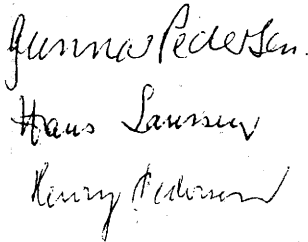 Gunnar Pedersen.
Hans Laursen
Henry Pedersen